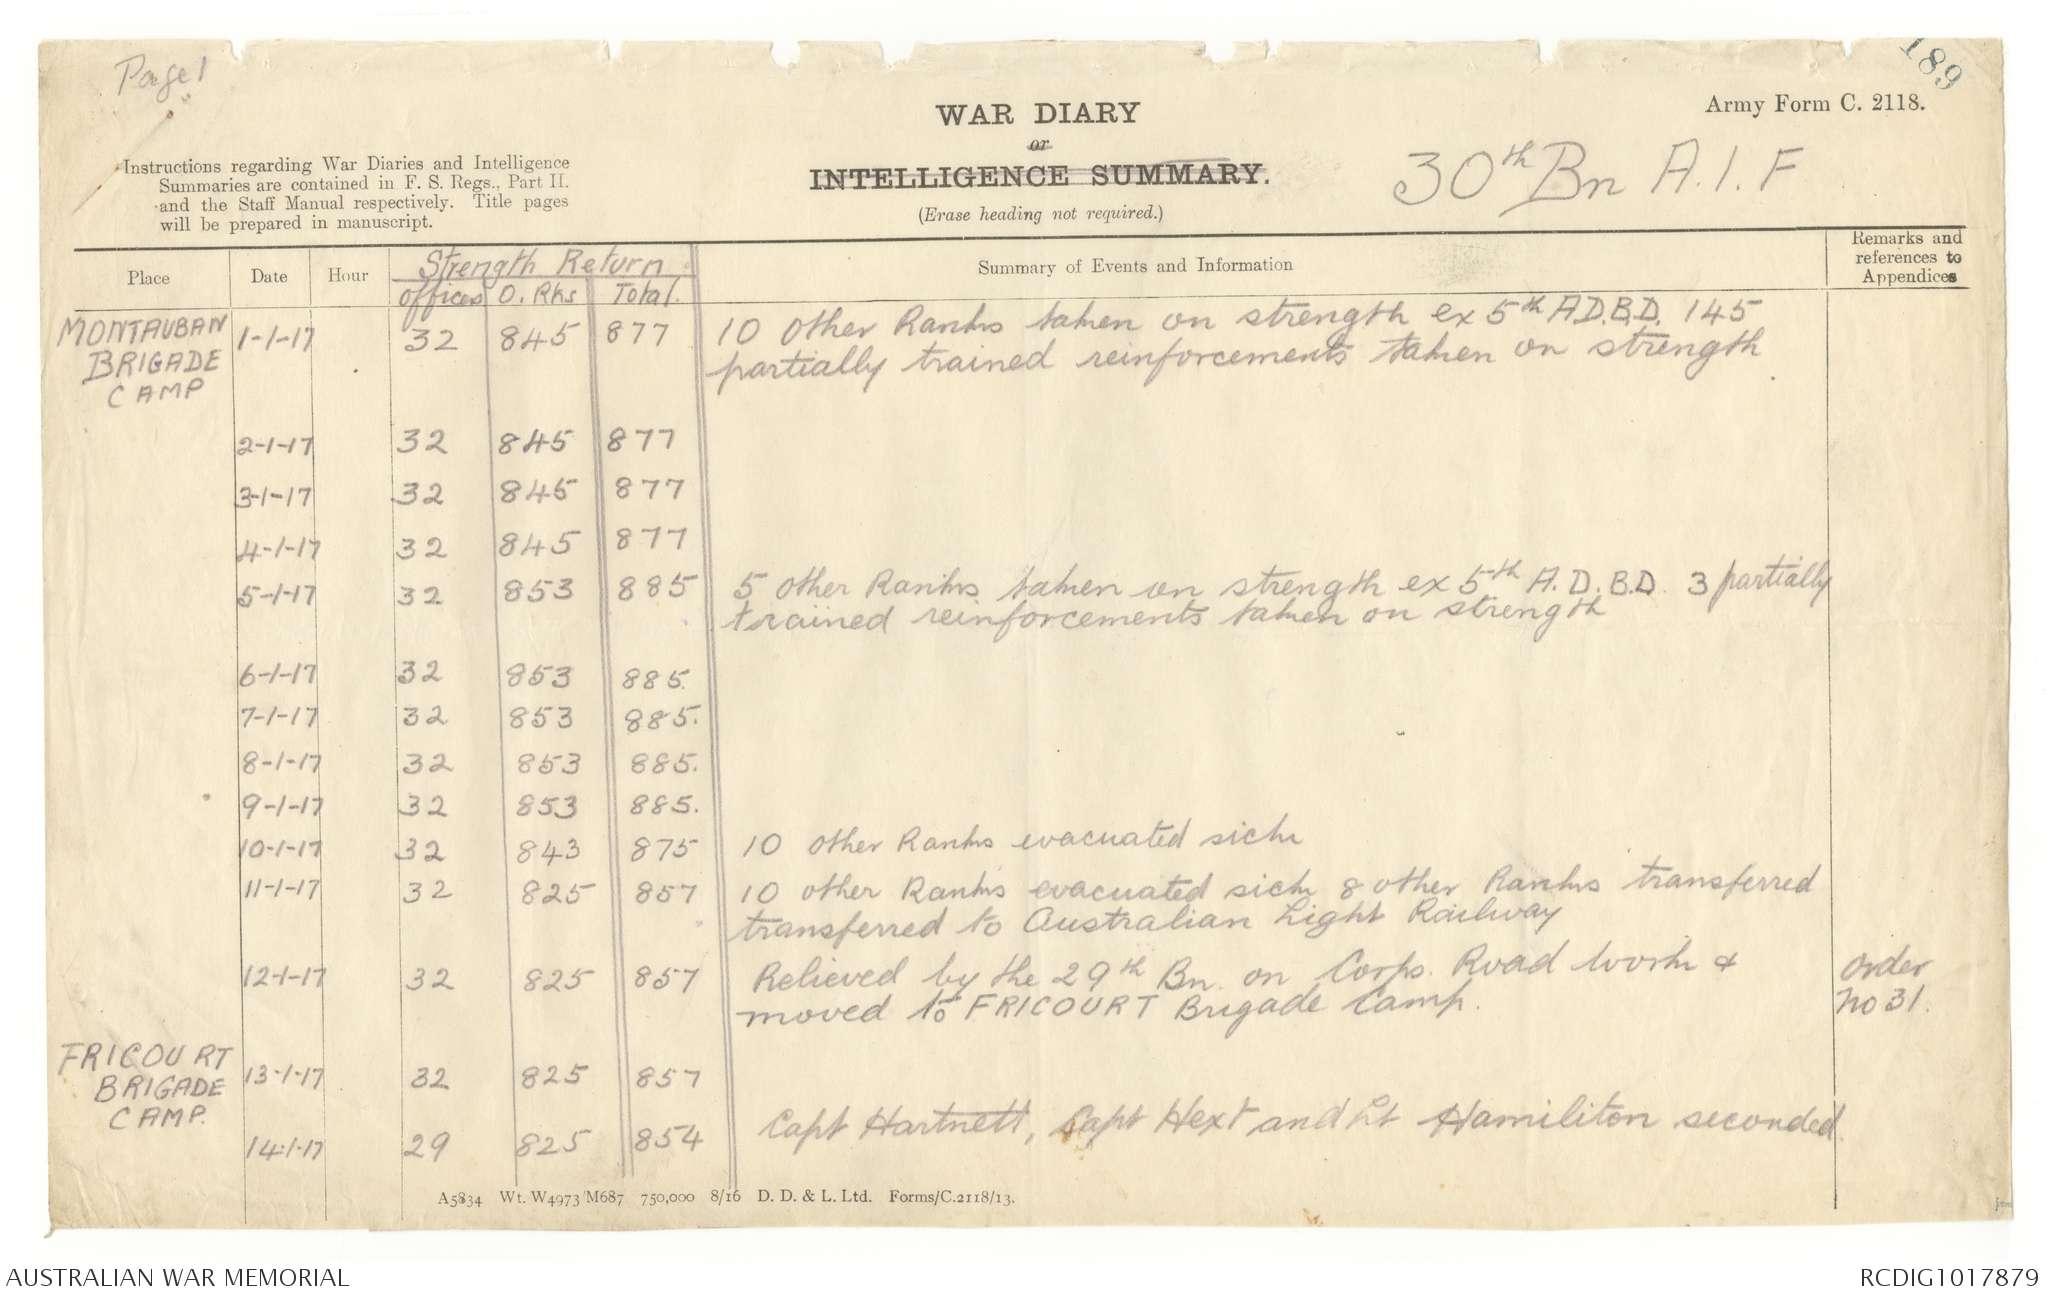 Page 1
189
Army Form C. 2118.
WAR DIARY
or
INTELLIGENCE SUMMARY.
(Erase heading not required.)
30th Bn A.I.F
Instructions regarding War Diaries and Intelligence
Summaries are contained in F. S. Regs., Part II.
and the Staff Manual respectively. Title pages
will be prepared in manuscript.
Place Date Hour Strength Return Summary of Events and Information Remarks and
references to
Appendices
Offices O. Rks Total.
MONTAUBAN 1-1-17 32 845 877 10 Other Ranks taken on strength ex 5th A.D.B.D. 145
BRIGADE partially trained reinforcements taken on strength
CAMP
2-1-17 32 845 877
3-1-17 32 845 877
4-1-17 32 845 877
5-1-17 32 853 885 5 other Ranks taken on strength ex 5th A.D.B.D. 3 partially
trained reinforcements taken on strength
6-1-17 32 853 885.
7-1-17 32 853 885.
8-1-17 32 853 885.
9-1-17 32 853 885.
10-1-17 32 843 875 10 other Ranks evacuated sick
11-1-17 32 825 857 10 other Ranks evacuated sick 8 other Ranks transferred
transferred to Australian Light Railway
12-1-17 32 825 857 Relieved by the 29th Bn. on Corps. Road work & order
moved to FRICOURT Brigade Camp. no 31.
FRICOURT
BRIGADE 13-1-17 32 825 857
CAMP.
14-1-17 29 825 854 Capt Hartnett, Capt Hext and Lt Hamiliton seconded.
A5834 Wt. W4973/M687 750,000 8/16 D. D. & L. Ltd. Forms/C.2118/13.
AUSTRALIAN WAR MEMORIAL
RCDIG1017879